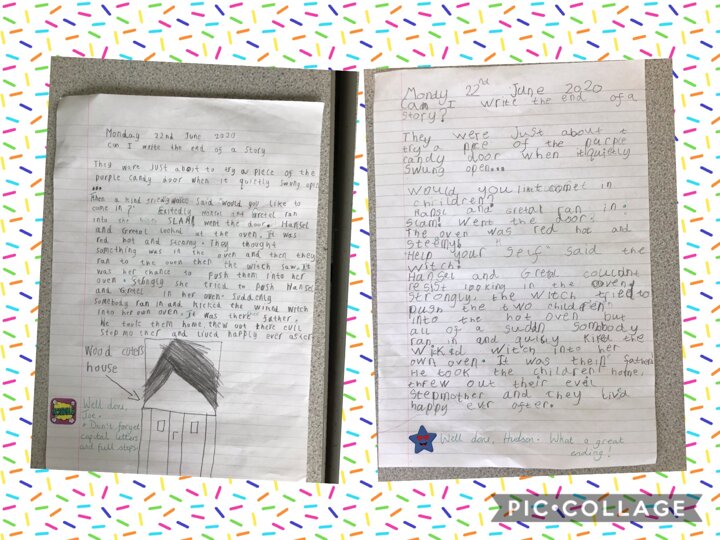 Monday 22nd June 2020
Can I write the end of a story
They ware just about to try a piece of the
purple candy door when it quietly swung open
...
then a kind friendly voice said "would you like to
come in?" Exitedly Hansel and Gretel ran
into the house SLAM went the door. Hansel
and Gretel looked at the oven. It was
red hot and steamy. They thought
something was in the oven and then they
ran to the oven then the witch saw. It
was her chance to push them into her
oven. Stongly she tried to push Hansel
and Gretel in her oven. Suddenly
somebody ran in and kicked the wicked witch
into her own oven. It was there father.
He took them home, threw out there evil
Step mother and lived happily ever after
Wood cuters
house
Well done,
Joe.
• Don't forget
capital letters
and full stops!
Mondy 22nd June 2020
Can I write the end of a
story?
They were just about t
try a piece of the purple
candy door when it quietly
swung open...
Would you like to come in
children?
Hansel and Gretal ran in.
Slam! Went the door.
The oven was red hot and
steemy!
Help your self said the
witch!
Hansel and Gretel couldnt
resist looking in the oven!
Strongly, the witch tried to
push the two children
into the hot oven but
all of a suddn sombody
ran in and quikly kiked the
Wicksd witch into her
own oven. It was them father
He took the children home,
threw out their evil
Stepmother and they livd
happy ever after.
Well done, Hudson. What a great
ending!
PIC•COLLAGE